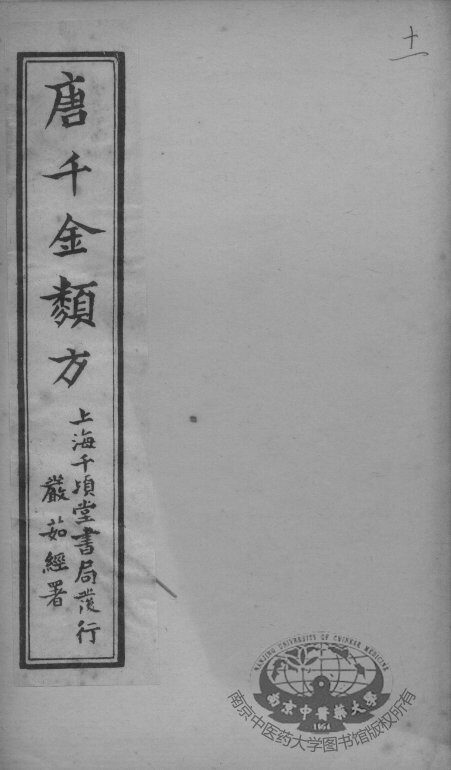 十一
唐千金類方
上海千頃堂書局發行
嚴茹經署
NANJING UNIVERSITY OF CHINESE MEDICINE
南京中醫藥大學
1954
南京中医药大学图书馆版权所有